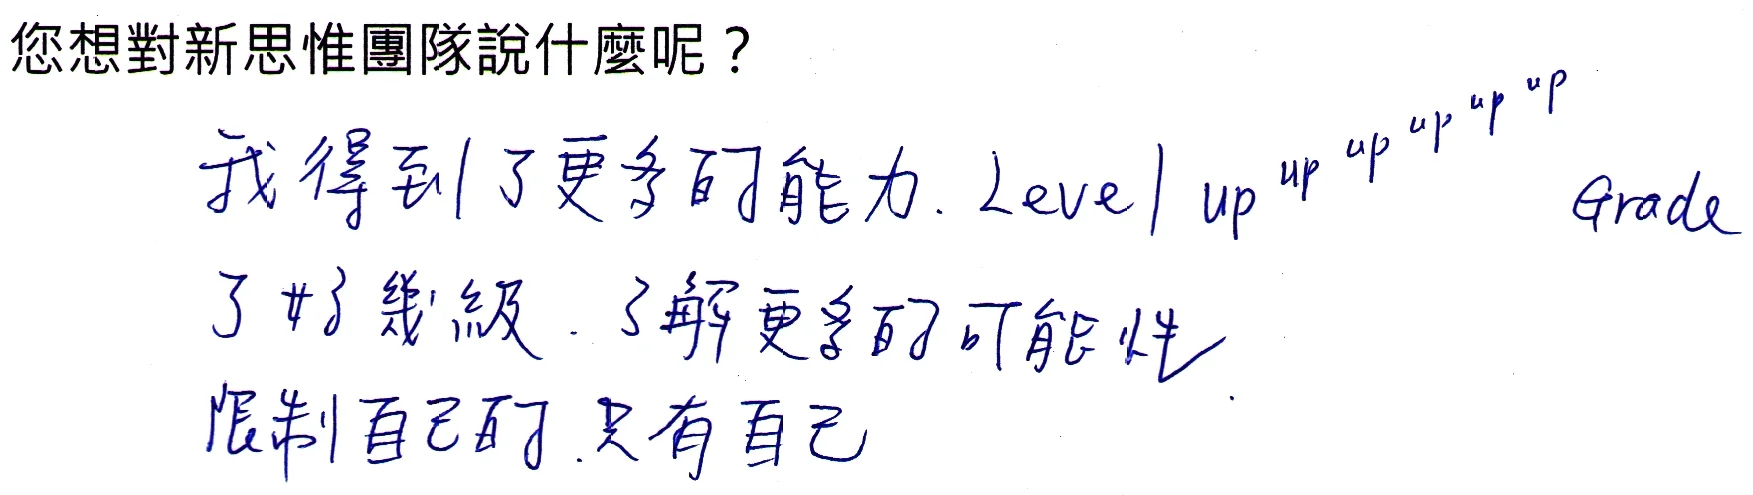 您想對新思惟團隊說什麼呢？
我得到了更多的能力. Level up up up up up up Grade
了好幾級. 了解更多的可能性.
限制自己的.只有自己